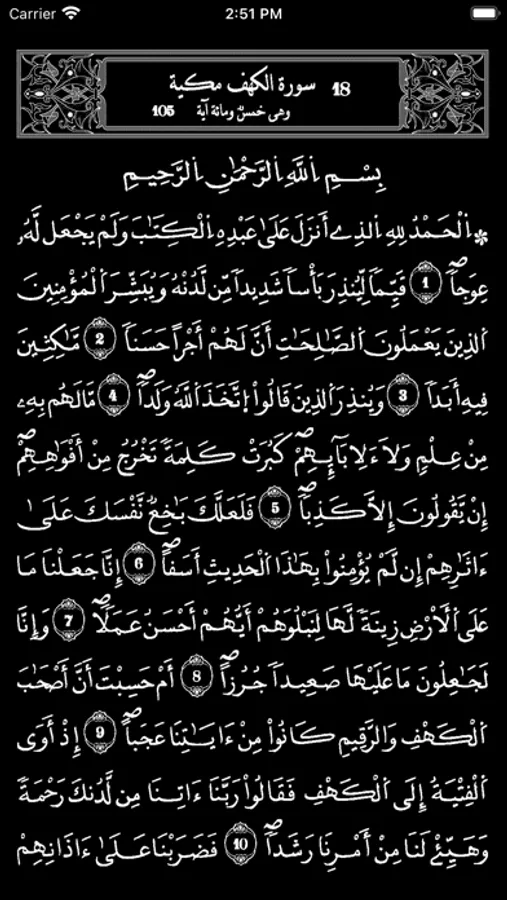 Carrier 2:51 PM
18 سورة الكهف مكية
وهى خمسٌ ومائة آية 105
بِسْمِ اِ۬للَّهِ اِ۬لرَّحْمَٰنِ اِ۬لرَّحِيمِ
۞ اِ۬لْحَمْدُ لِلهِ اِ۬لذِےٓ أَنزَلَ عَلَىٰ عَبْدِهِ اِ۬لْكِتَٰبَ وَلَمْ يَجْعَل لَّهُۥ
عِوَجاٗۖ 1 قَيِّماٗ لِّيُنذِرَ بَأْساٗ شَدِيداٗ مِّن لَّدُنْهُ وَيُبَشِّرَ اَ۬لْمُؤْمِنِينَ
اَ۬لذِينَ يَعْمَلُونَ اَ۬لصَّٰلِحَٰتِ أَنَّ لَهُمْ أَجْراً حَسَناٗ 2 مَّٰكِثِينَ
فِيهِ أَبَداٗ 3 وَيُنذِرَ اَ۬لذِينَ قَالُواْ اُ۪تَّخَذَ اَ۬للَّهُ وَلَداٗۖ 4 مَّا لَهُم بِهِۦ
مِنْ عِلْمٍ وَلَا ءَلِابَآئِهِمْۖ كَبُرَتْ كَلِمَةٗ تَخْرُجُ مِنْ أَفْوَٰهِهِمْۖ
إِنْ يَّقُولُونَ إِلَّا كَذِباٗۖ 5 فَلَعَلَّكَ بَٰخِعٞ نَّفْسَكَ عَلَىٰٓ
ءَاثَٰرِهِمْ إِن لَّمْ يُؤْمِنُواْ بِهَٰذَا اَ۬لْحَدِيثِ أَسَفاًۖ 6 إِنَّا جَعَلْنَا مَا
عَلَى اَ۬لَارْضِ زِينَةٗ لَّهَا لِنَبْلُوَهُمْ أَيُّهُمْ أَحْسَنُ عَمَلاٗۖ 7 وَإِنَّا
لَجَٰعِلُونَ مَا عَلَيْهَا صَعِيداٗ جُرُزاًۖ 8 أَمْ حَسِبْتَ أَنَّ أَصْحَٰبَ
اَ۬لْكَهْفِ وَالرَّقِيمِ كَانُواْ مِنْ ءَايَٰتِنَا عَجَباًۖ 9 إِذْ أَوَى
اَ۬لْفِتْيَةُ إِلَى اَ۬لْكَهْفِ فَقَالُواْ رَبَّنَا ءَاتِنَا مِن لَّدُنكَ رَحْمَةٗ
وَهَيِّئْ لَنَا مِنْ أَمْرِنَا رَشَداٗۖ 10 فَضَرَبْنَا عَلَىٰٓ ءَاذَانِهِمْ